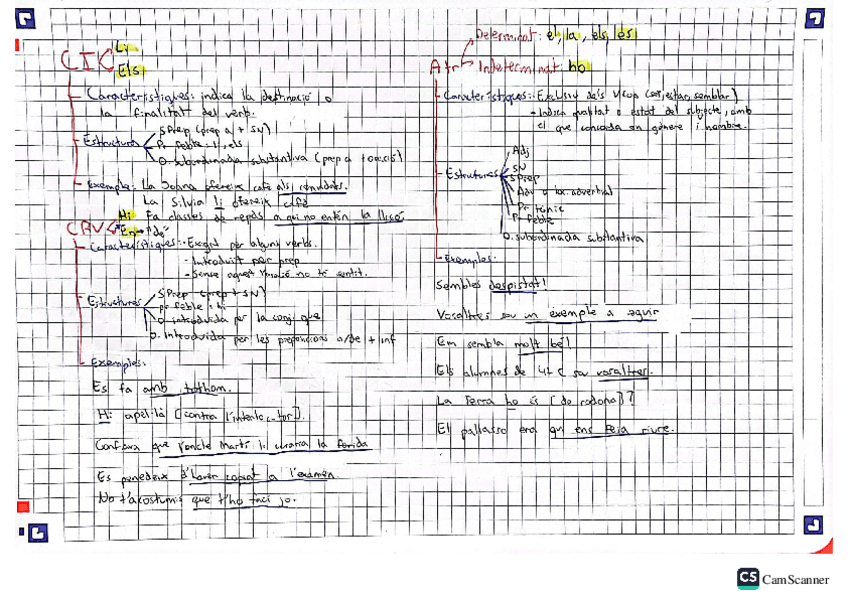 CIK Li
Els
Característiques: indica la destinació o
la finalitat del verb.
Estructura
SPrep (prep a + SN)
Pr feble: li, els
O. subordinada substantiva (prep a + oració)
Exemple: La Joana ofereix cafè als convidats.
La Sílvia li ofereix cafè
Fa classes de repàs a qui no entén la lliçó
CRV Hi
En → "de"
Característiques: - Exigit per alguns verbs.
- Introduït per prep
- Sense aquest no té sentit.
Estructures
SPrep (prep + SN)
pr feble: hi
O. introduïda per la conj. que
O. Introduïda per les preposicions a/de + inf
Exemples:
Es fa amb tothom.
Hi apel·la
Confiava que l'oncle Martí li curaria la ferida
Es penedeix d'haver copiat a l'examen.
No t'acostumis que t'ho faci jo.
Atr
Determinat: el, la, els, les
Indeterminat: ho
Característiques: Exclusiu dels V. Cop (ser, estar, semblar)
- Indica qualitat o estat del subjecte, amb
el que concorda en gènere i nombre.
Estructures
Adj
SN
SPrep
Adv o loc. adverbial
Pr tònic
Pr feble
O. subordinada substantiva
Exemples:
Sembles despistat!
Vosaltres sou un exemple a seguir
Em sembla molt bé!
Els alumnes de 4t C sou vosaltres.
La Terra ho és (de rodona)?
El pallasso era qui ens feia riure.
CS CamScanner